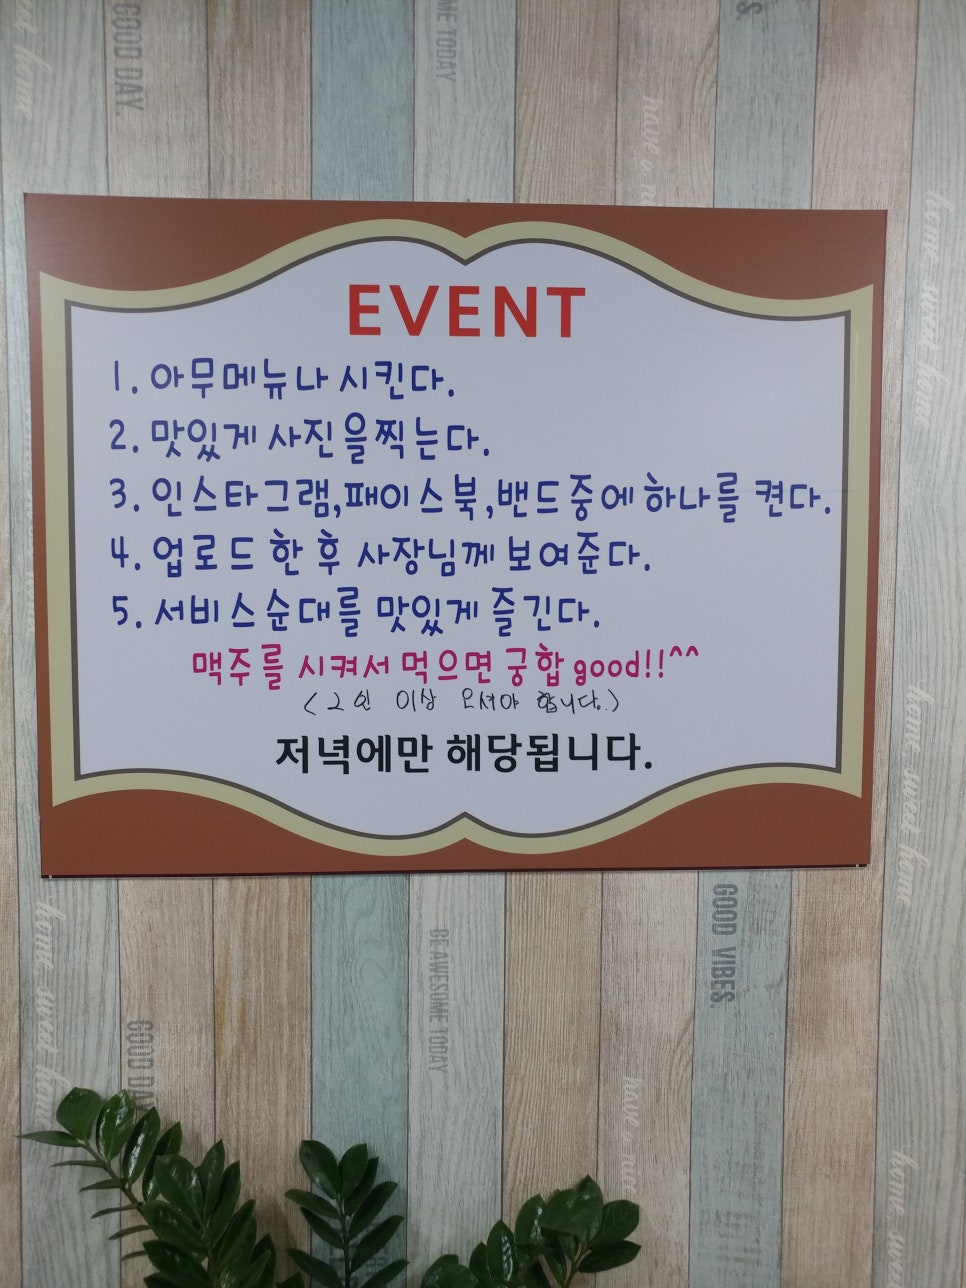 GOOD DAY.
BE AWESOME TODAY
home sweet home
EVENT
1. 아무메뉴나 시킨다.
2. 맛있게 사진을 찍는다.
3. 인스타그램,페이스북,밴드중에 하나를 켠다.
4. 업로드 한 후 사장님께 보여준다.
5. 서비스순대를 맛있게 즐긴다.
맥주를 시켜서 먹으면 궁합 good!!^^
(2인 이상 오셔야 합니다.)
저녁에만 해당됩니다.
home sweet home
home sweet home
GOOD VIBES.
BE AWESOME TODAY
GOOD DAY
have a nice
home sweet